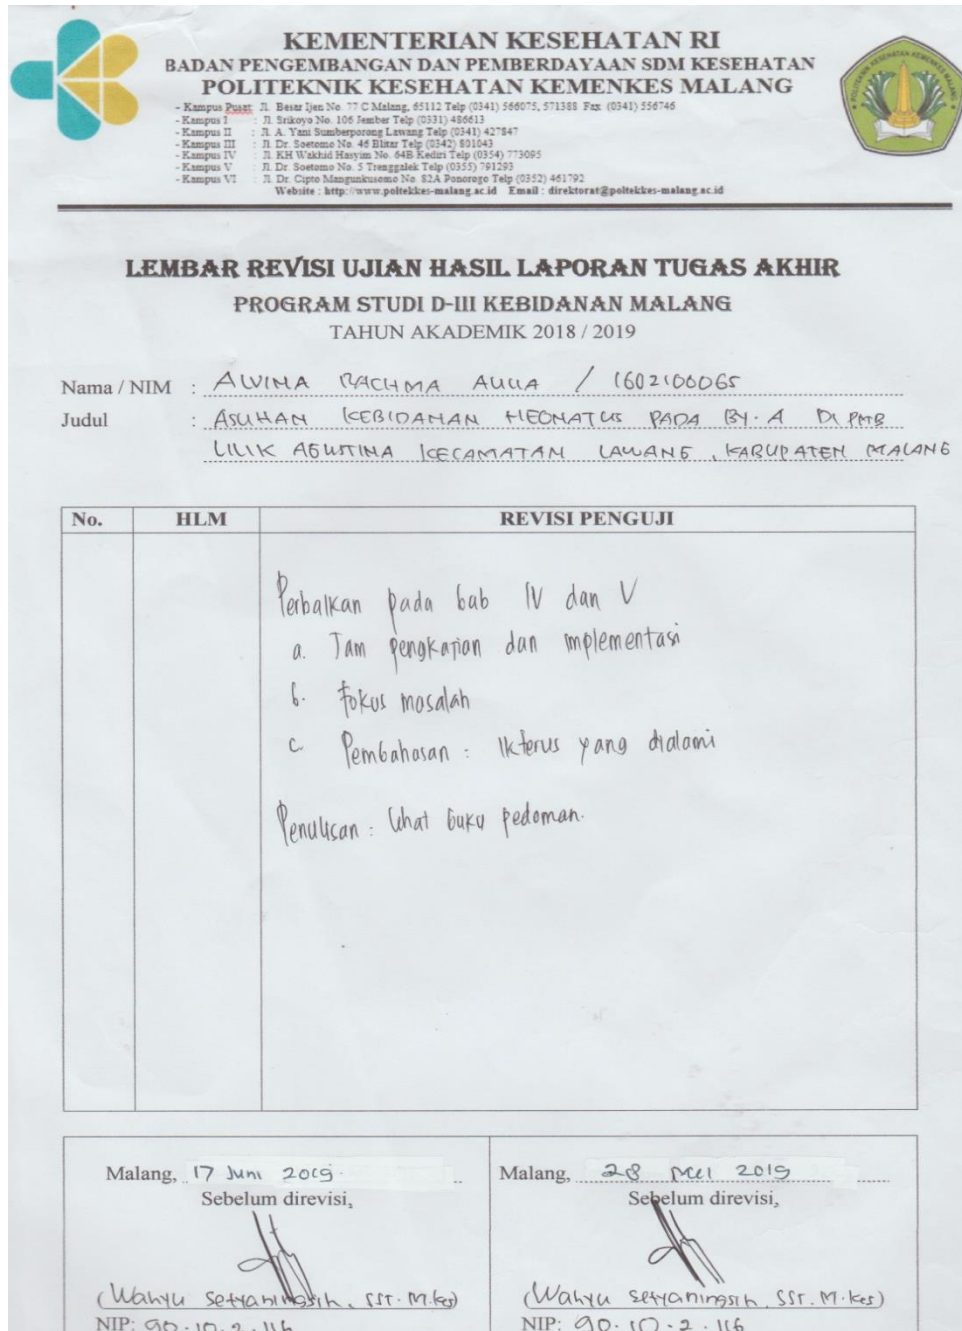 KEMENTERIAN KESEHATAN RI
BADAN PENGEMBANGAN DAN PEMBERDAYAAN SDM KESEHATAN
POLITEKNIK KESEHATAN KEMENKES MALANG
- Kampus Pusat : Jl. Besar Ijen No. 77 C Malang, 65112 Telp (0341) 566075, 571388 Fax (0341) 556746
- Kampus I : Jl. Srikoyo No. 106 Jember Telp (0331) 486613
- Kampus II : Jl. A. Yani Sumberporong Lawang Telp (0341) 427847
- Kampus III : Jl. Dr. Soetomo No. 46 Blitar Telp (0342) 801043
- Kampus IV : Jl. KH Wakhid Hasyim No. 64B Kediri Telp (0354) 773095
- Kampus V : Jl. Dr. Soetomo No. 5 Trenggalek Telp (0355) 791293
- Kampus VI : Jl. Dr. Cipto Mangunkusomo No. 82A Ponorogo Telp (0352) 461792
Website : http://www.poltekkes-malang.ac.id Email : direktorat@poltekkes-malang.ac.id
LEMBAR REVISI UJIAN HASIL LAPORAN TUGAS AKHIR
PROGRAM STUDI D-III KEBIDANAN MALANG
TAHUN AKADEMIK 2018 / 2019
Nama / NIM : ALVINA RACHMA AULIA / 1602100065
Judul : ASUHAN KEBIDANAN NEONATUS PADA BY. A DI PMB
LILIK AGUSTINA KECAMATAN LAWANG, KABUPATEN MALANG
No. HLM REVISI PENGUJI
Perbaikan pada bab IV dan V
a. Jam pengkajian dan implementasi
b. Fokus masalah
c. Pembahasan : Ikterus yang dialami
Penulisan : lihat buku pedoman.
Malang, 17 Juni 2019.
Sebelum direvisi,
(Wahyu Setyaningsih, SST. M.Kes)
NIP: 90.10.2.116
Malang, 28 Mei 2019
Sebelum direvisi,
(Wahyu Setyaningsih, SST. M.Kes)
NIP: 90.10.2.116